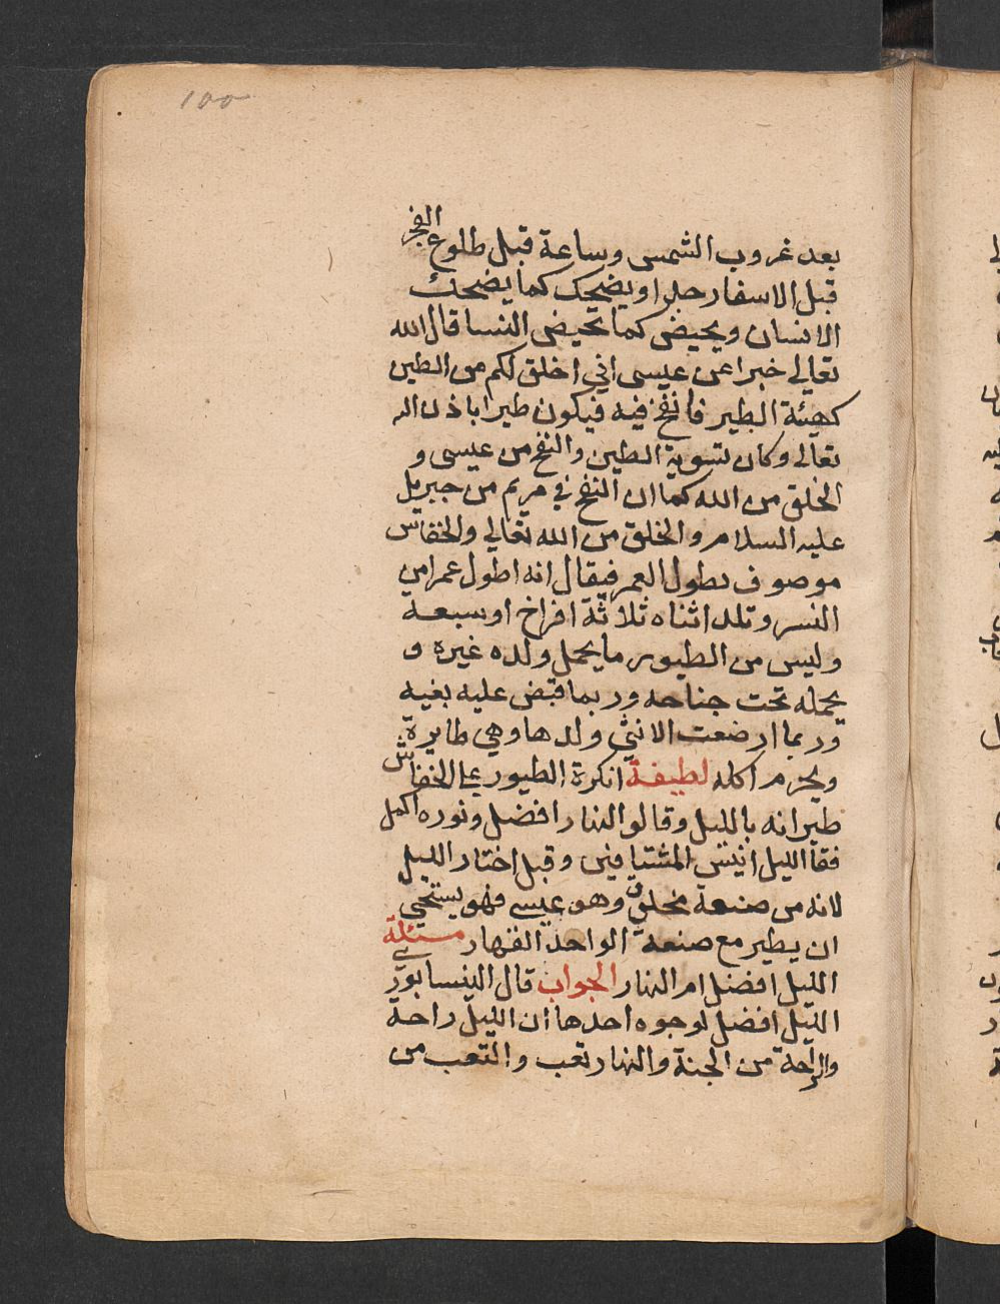 ١٥٥
بعد غروب الشمس وساعة قبل طلوع الفجر
قبل الاسفار جدا ويضحك كما يضحك
الانسان ويحيض كما تحيض النسا قال الله
تعالى خبرا عن عيسى اني اخلق لكم من الطين
كهيئة الطير فانفخ فيه فيكون طيرا باذن الله
تعالى وكان تسوية الطين والنفخ من عيسى و
الخلق من الله كما ان النفخ في مريم من جبريل
عليه السلام والخلق من الله تعالى والخفاش
موصوف بطول العمر فيقال انه اطول عمرا من
النسر وتلد انثاه ثلاثة افراخ او سبعة
وليس من الطيور ما يحمل ولده غيره و
يحمله تحت جناحه وربما قبض عليه بفيه
وربما ارضعت الانثى ولدها وهي طايرة
ويحرم اكله لطيفة انكرة الطيور على الخفاش
طيرانه بالليل وقالو النهار افضل ونوره اكمل
فقا الليل انيس المشتاقين وقيل اختار الليل
لانه من صنعة مخلوق وهو عيسى فهو يستحي
ان يطير مع صنعة الواحد القهار مسئلة
الليل افضل ام النهار الجواب قال النيسابوري
الليل افضل لوجوه احدها ان الليل راحة
والراحة من الجنة والنهار تعب والتعب من